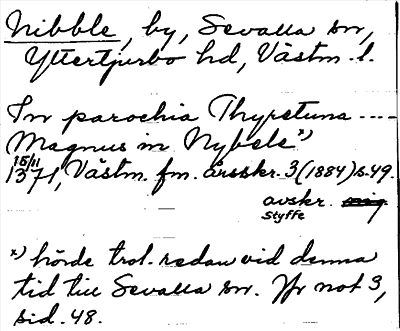 Nibble, by, Sevalla sn,
Yttertjurbo hd, Västm. l.
In parochia Thyretuna ----
Magnus in Nybele x)
15/11
1371, Västm. fm. årsskr. 3 (1884) s. 49.
avskr.
Styffe
x) hörde trol. redan vid denna
tid till Sevalla sn. Jfr not 3,
sid. 48.